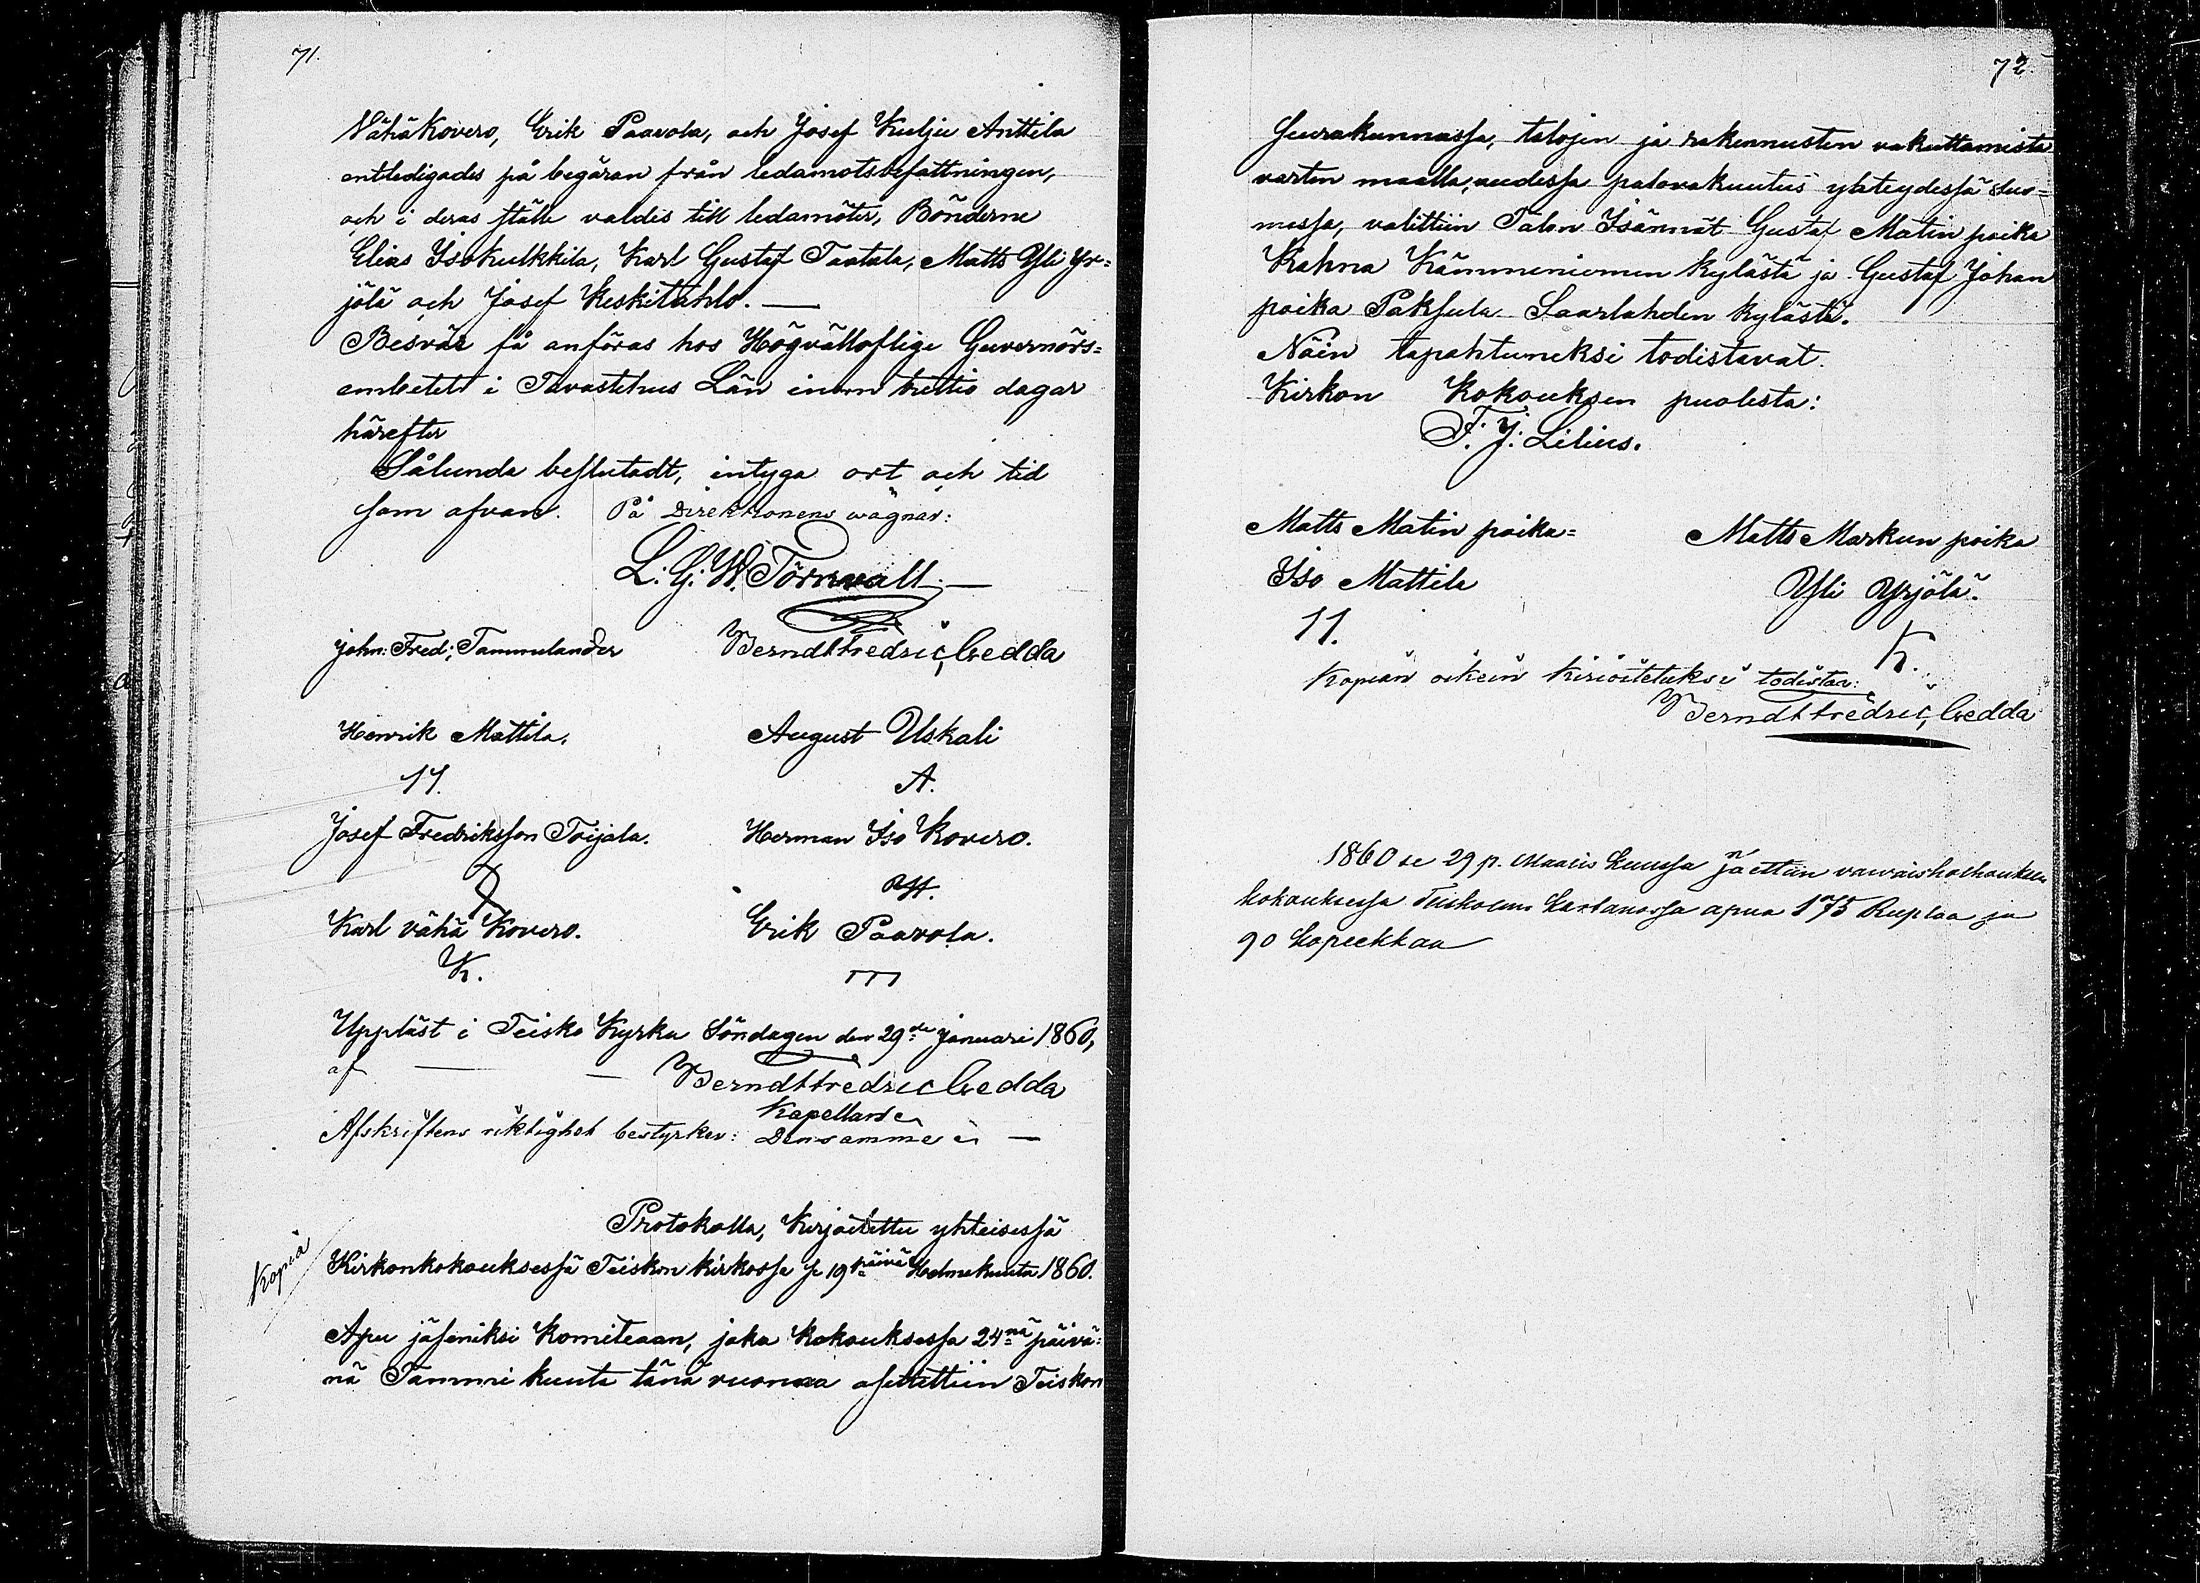 71.
Vähäkovero, Erik Paavola, och Josef Kulju Anttila
entledigades på begäran från ledamotsbefattningen,
och i deras ställe valdes till ledamöter, Bönderne
Elias Isokulkkila, Karl Gustaf Taatala, Matts Yli Yr=
jölä och Josef Keskitahlo. —
Besvär få anföras hos Högvälloflige Guvernörs=
embetet i Tavastehus Län inom trettio dagar
härefter
Sålunda beslutadt, intyga ort och tid
som ofvan. På Direktionens wägnar:
L. G. W. Törnvall. —
John: Fred: Tammelander Berndt Fredric Gedda
Henrik Mattila. August Uskali
11. A.
Josef Fredriksson Toijala. Herman Iso Kovero.
Karl vähä Kovero. Erik Paavola.
K. m
Uppläst i Teisko Kyrka Söndagen den 29de Januari 1860,
af — — Berndt Fredric Gedda
Kapellan
Afskriftens riktighet bestyrker: Densamme —
Protokolla, Kirjoitettu yhteisessä
Kopia Kirkonkokouksessa Teiskon kirkossa se 19 päivä Helmekuuta 1860.
Apu jäseniksi Komiteaan, joka Kokouksessa 24nä päivä=
nä Tammikuuta tänä vuonna asetettiin Teiskon
72.
Seurakunnassa, talojen ja rakennusten vakuttamista
varten maalla, uudessa palovakuutus yhteydessä Suo=
messa, valittiin Talon Isännät Gustaf Matin poika
Kahna Kämmeniemen kylästä ja Gustaf Johan
poika Paksula Saarlahden kylästä.
Näin tapahtuneksi todistavat.
Kirkon Kokouksen puolesta:
F. J. Lilius.
Matts Matin poika= Matts Markun poika
Iso Mattila Yli Yrjölä.
11. K.
Kopian oikein kirioitetuksi todistaa:
Berndt Fredric Gedda
1860 se 29 p. Maalis kuussa jaettiin vaivaishoihouksen
kokouksessa Teiskolan kartanossa apua 175 Ruplaa ja
90 kopeekkaa